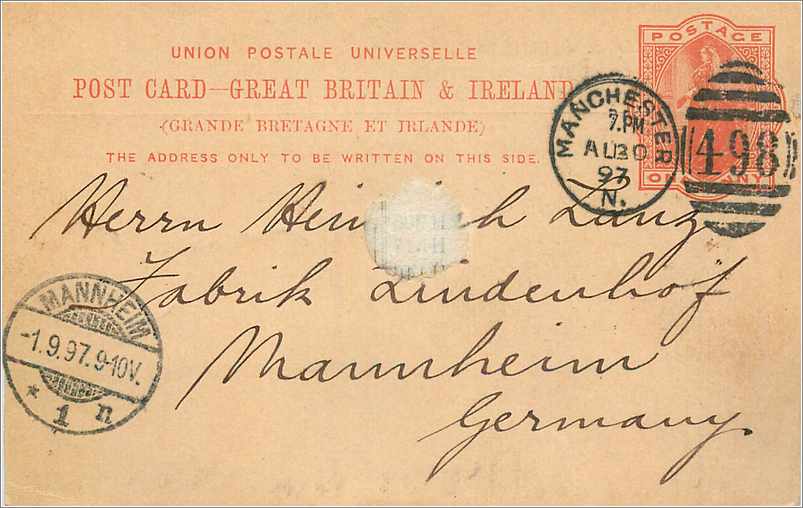 UNION POSTALE UNIVERSELLE
POST CARD—GREAT BRITAIN & IRELAND
(GRANDE BRETAGNE ET IRLANDE)
THE ADDRESS ONLY TO BE WRITTEN ON THIS SIDE.
POSTAGE
MANCHESTER
7.PM
AU30
97
N.
498
Herrn Heinrich Lanz
Fabrik Lindenhof
Mannheim
Germany.
MANNHEIM
-1.9.97.9-10V.
* 1 n